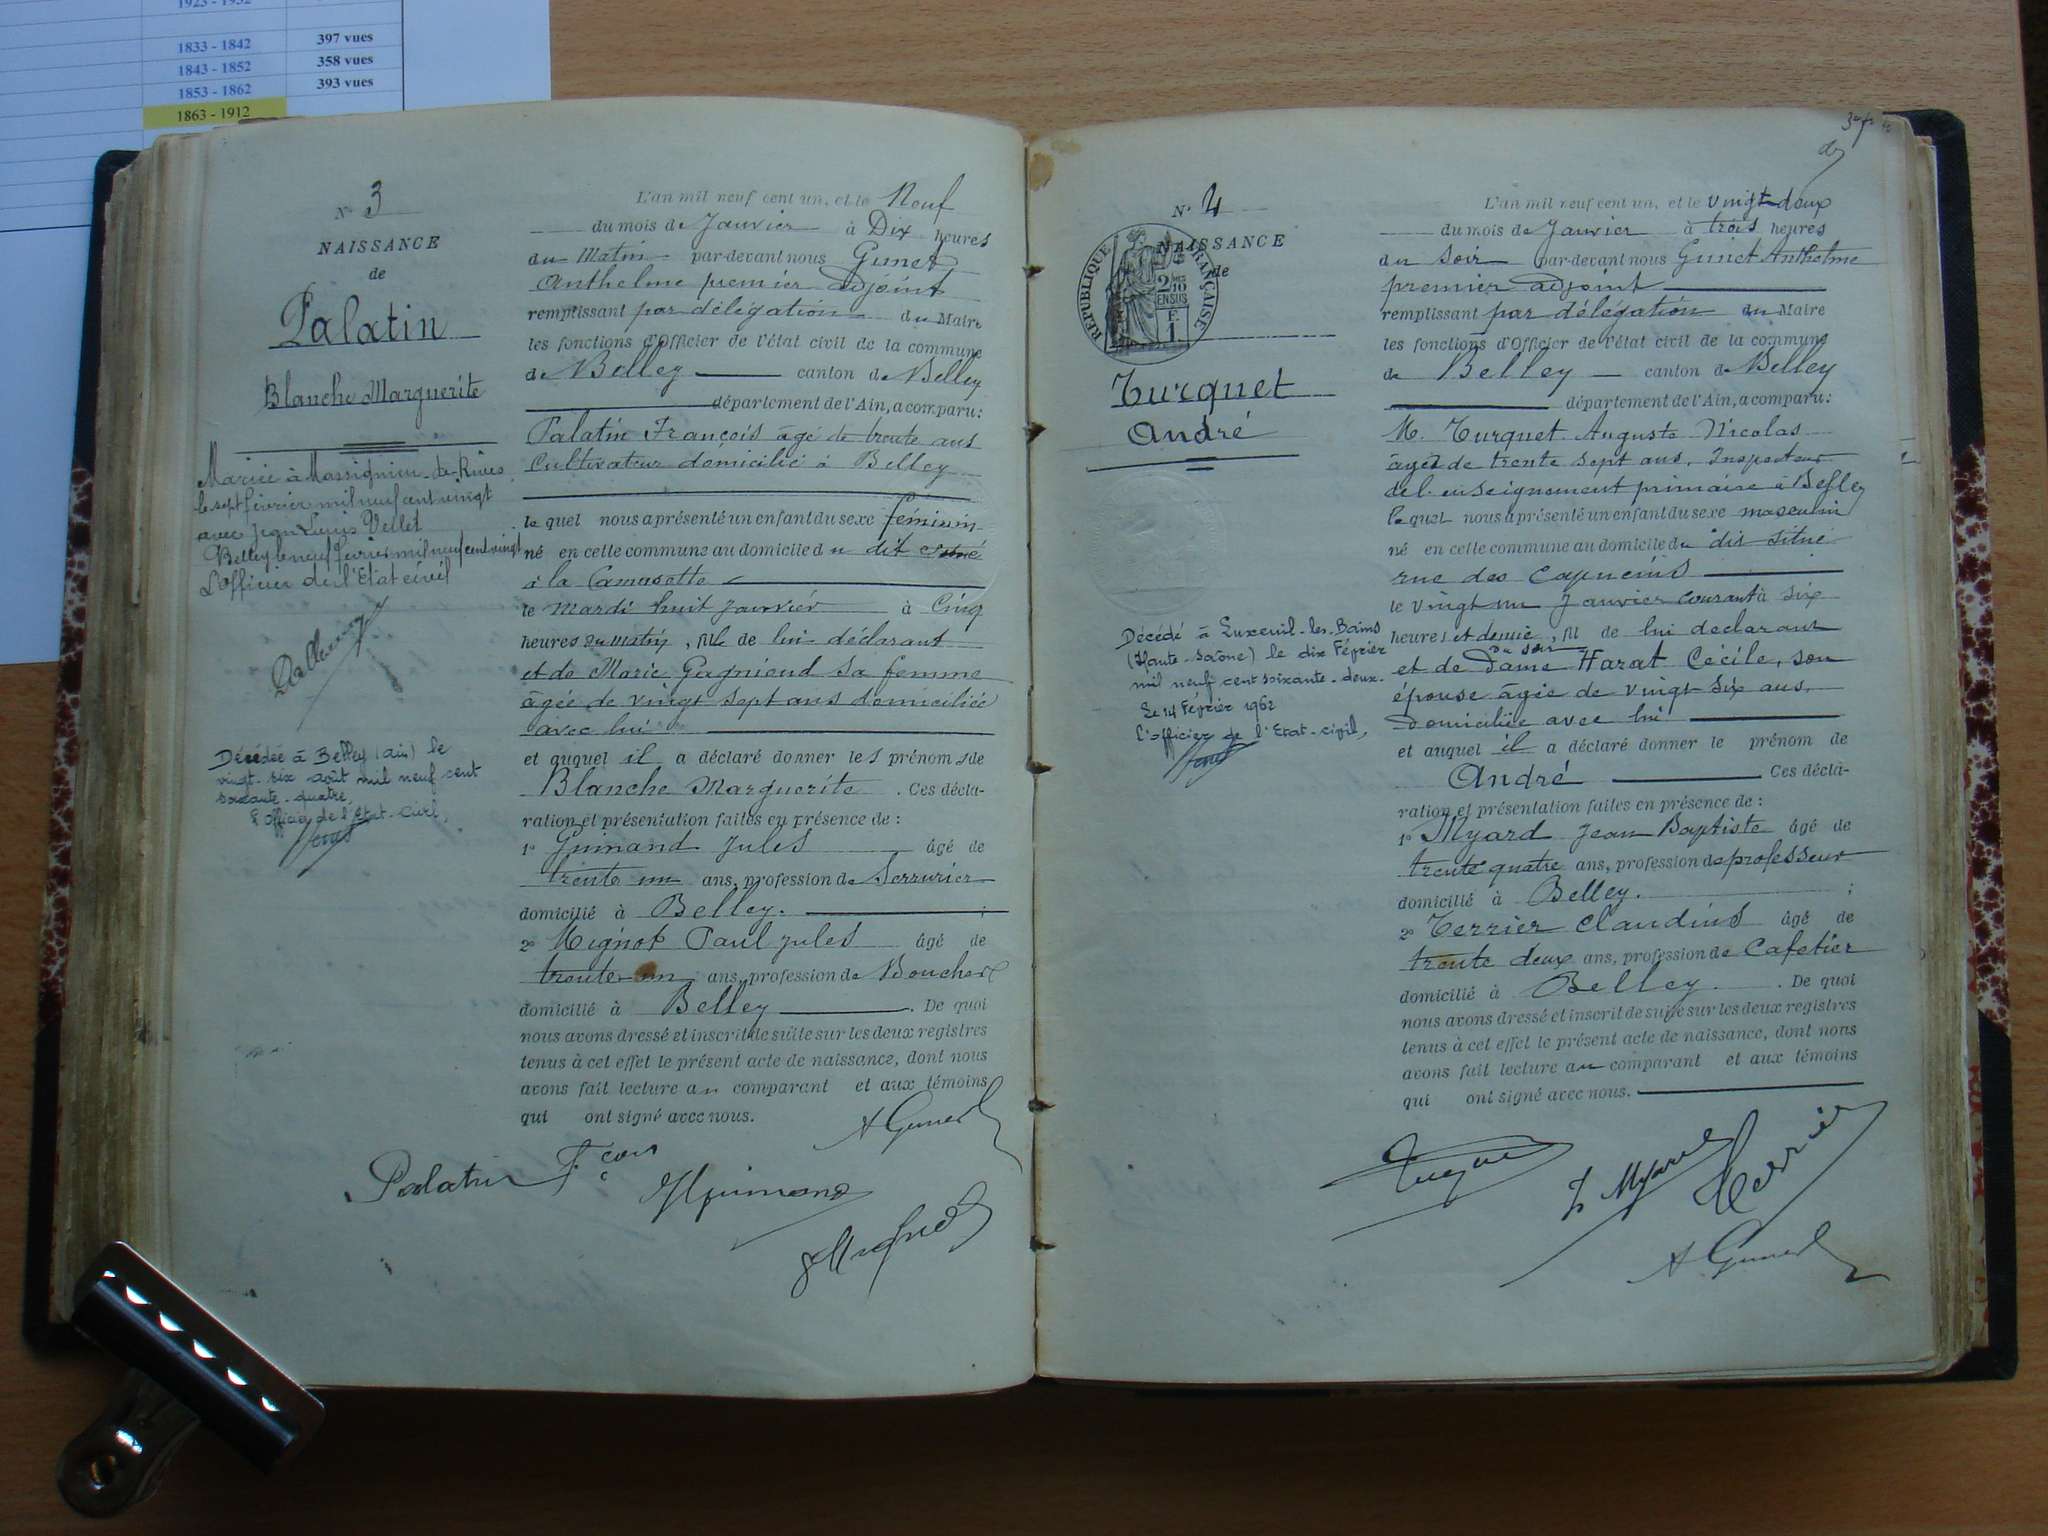 1833 - 1842 397 vues
1843 - 1852 358 vues
1853 - 1862 393 vues
1863 - 1912
N° 3
NAISSANCE
de
Palatin
Blanche Marguerite
Mariée à Massignieu-de-Rives
le sept février mil neuf cent vingt
avec Jean Louis Vellet
Belley le neuf février mil neuf cent vingt
L'officier de l'Etat civil
Décédée à Belley (ain) le
vingt-six août mil neuf cent
soixante-quatre
L'Officier de l'Etat-Civil,
L'an mil neuf cent un, et le Neuf
du mois de Janvier à Dix heures
du Matin par-devant nous Gunet
Anthelme premier adjoint
remplissant par délégation du Maire
les fonctions d'Officier de l'état civil de la commune
de Belley canton de Belley
département de l'Ain, a comparu:
Palatin François âgé de trente ans
Cultivateur domicilié à Belley
le quel nous a présenté un enfant du sexe féminin
né en cette commune au domicile du dit situé
à la Camusette
le mardi huit Janvier à Cinq
heures du matin, fille de lui déclarant
et de Marie Gagnieud sa femme
âgée de vingt sept ans domiciliée
avec lui
et auquel il a déclaré donner les prénoms de
Blanche Marguerite. Ces décla-
ration et présentation faites en présence de :
1° Guinand Jules âgé de
trente un ans, profession de Serrurier
domicilié à Belley. ;
2° Mignot Paul Jules âgé de
trente-un ans, profession de Boucher
domicilié à Belley. De quoi
nous avons dressé et inscrit de suite sur les deux registres
tenus à cet effet le présent acte de naissance, dont nous
avons fait lecture au comparant et aux témoins
qui ont signé avec nous.
A Gunet
Palatin Fçois JGuinand
Mignot
N° 4
NAISSANCE
de
RÉPUBLIQUE FRANÇAISE
2/10
EN SUS
1F.
Turquet
André
Décédé à Luxeuil-les-Bains
(Haute-Saône) le dix Février
mil neuf cent soixante-deux.
Le 14 Février 1962
L'officier de l'Etat-civil,
L'an mil neuf cent un, et le vingt-deux
du mois de Janvier à trois heures
du soir par-devant nous Gunet Anthelme
premier adjoint
remplissant par délégation du Maire
les fonctions d'Officier de l'état civil de la commune
de Belley canton de Belley
département de l'Ain, a comparu:
M. Turquet Auguste Nicolas
âgé de trente sept ans, Inspecteur
de l'enseignement primaire à Belley
le quel nous a présenté un enfant du sexe masculin
né en cette commune au domicile du dit situé
rue des Capucins
le vingt un Janvier courant à six
heures et demie, fils de lui déclarant
du soir
et de Dame Harat Cécile, son
épouse âgée de vingt six ans,
domiciliée avec lui
et auquel il a déclaré donner le prénom de
André Ces décla-
ration et présentation faites en présence de :
1° Myard Jean Baptiste âgé de
trente quatre ans, profession de professeur
domicilié à Belley. ;
2° Terrier Claudius âgé de
trente deux ans, profession de Cafetier
domicilié à Belley. De quoi
nous avons dressé et inscrit de suite sur les deux registres
tenus à cet effet le présent acte de naissance, dont nous
avons fait lecture au comparant et aux témoins
qui ont signé avec nous.
Turquet J. Myard Terrier
A Gunet